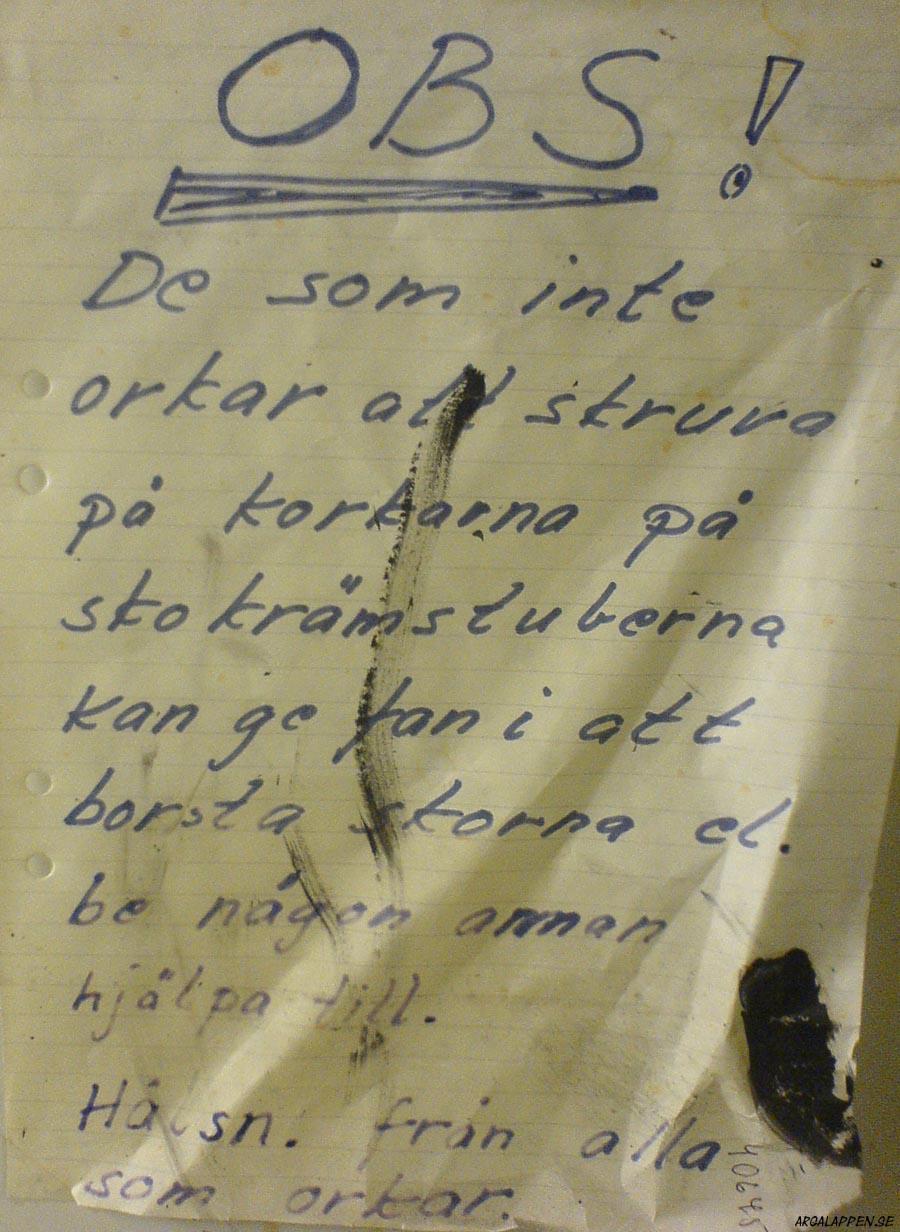 OBS!
De som inte
orkar att skruva
på korkarna på
skokrämstuberna
kan ge fan i att
borsta skorna el.
be någon annan
hjälpa till.
Hälsn. från alla
som orkar.
406445
ARGALAPPEN.SE